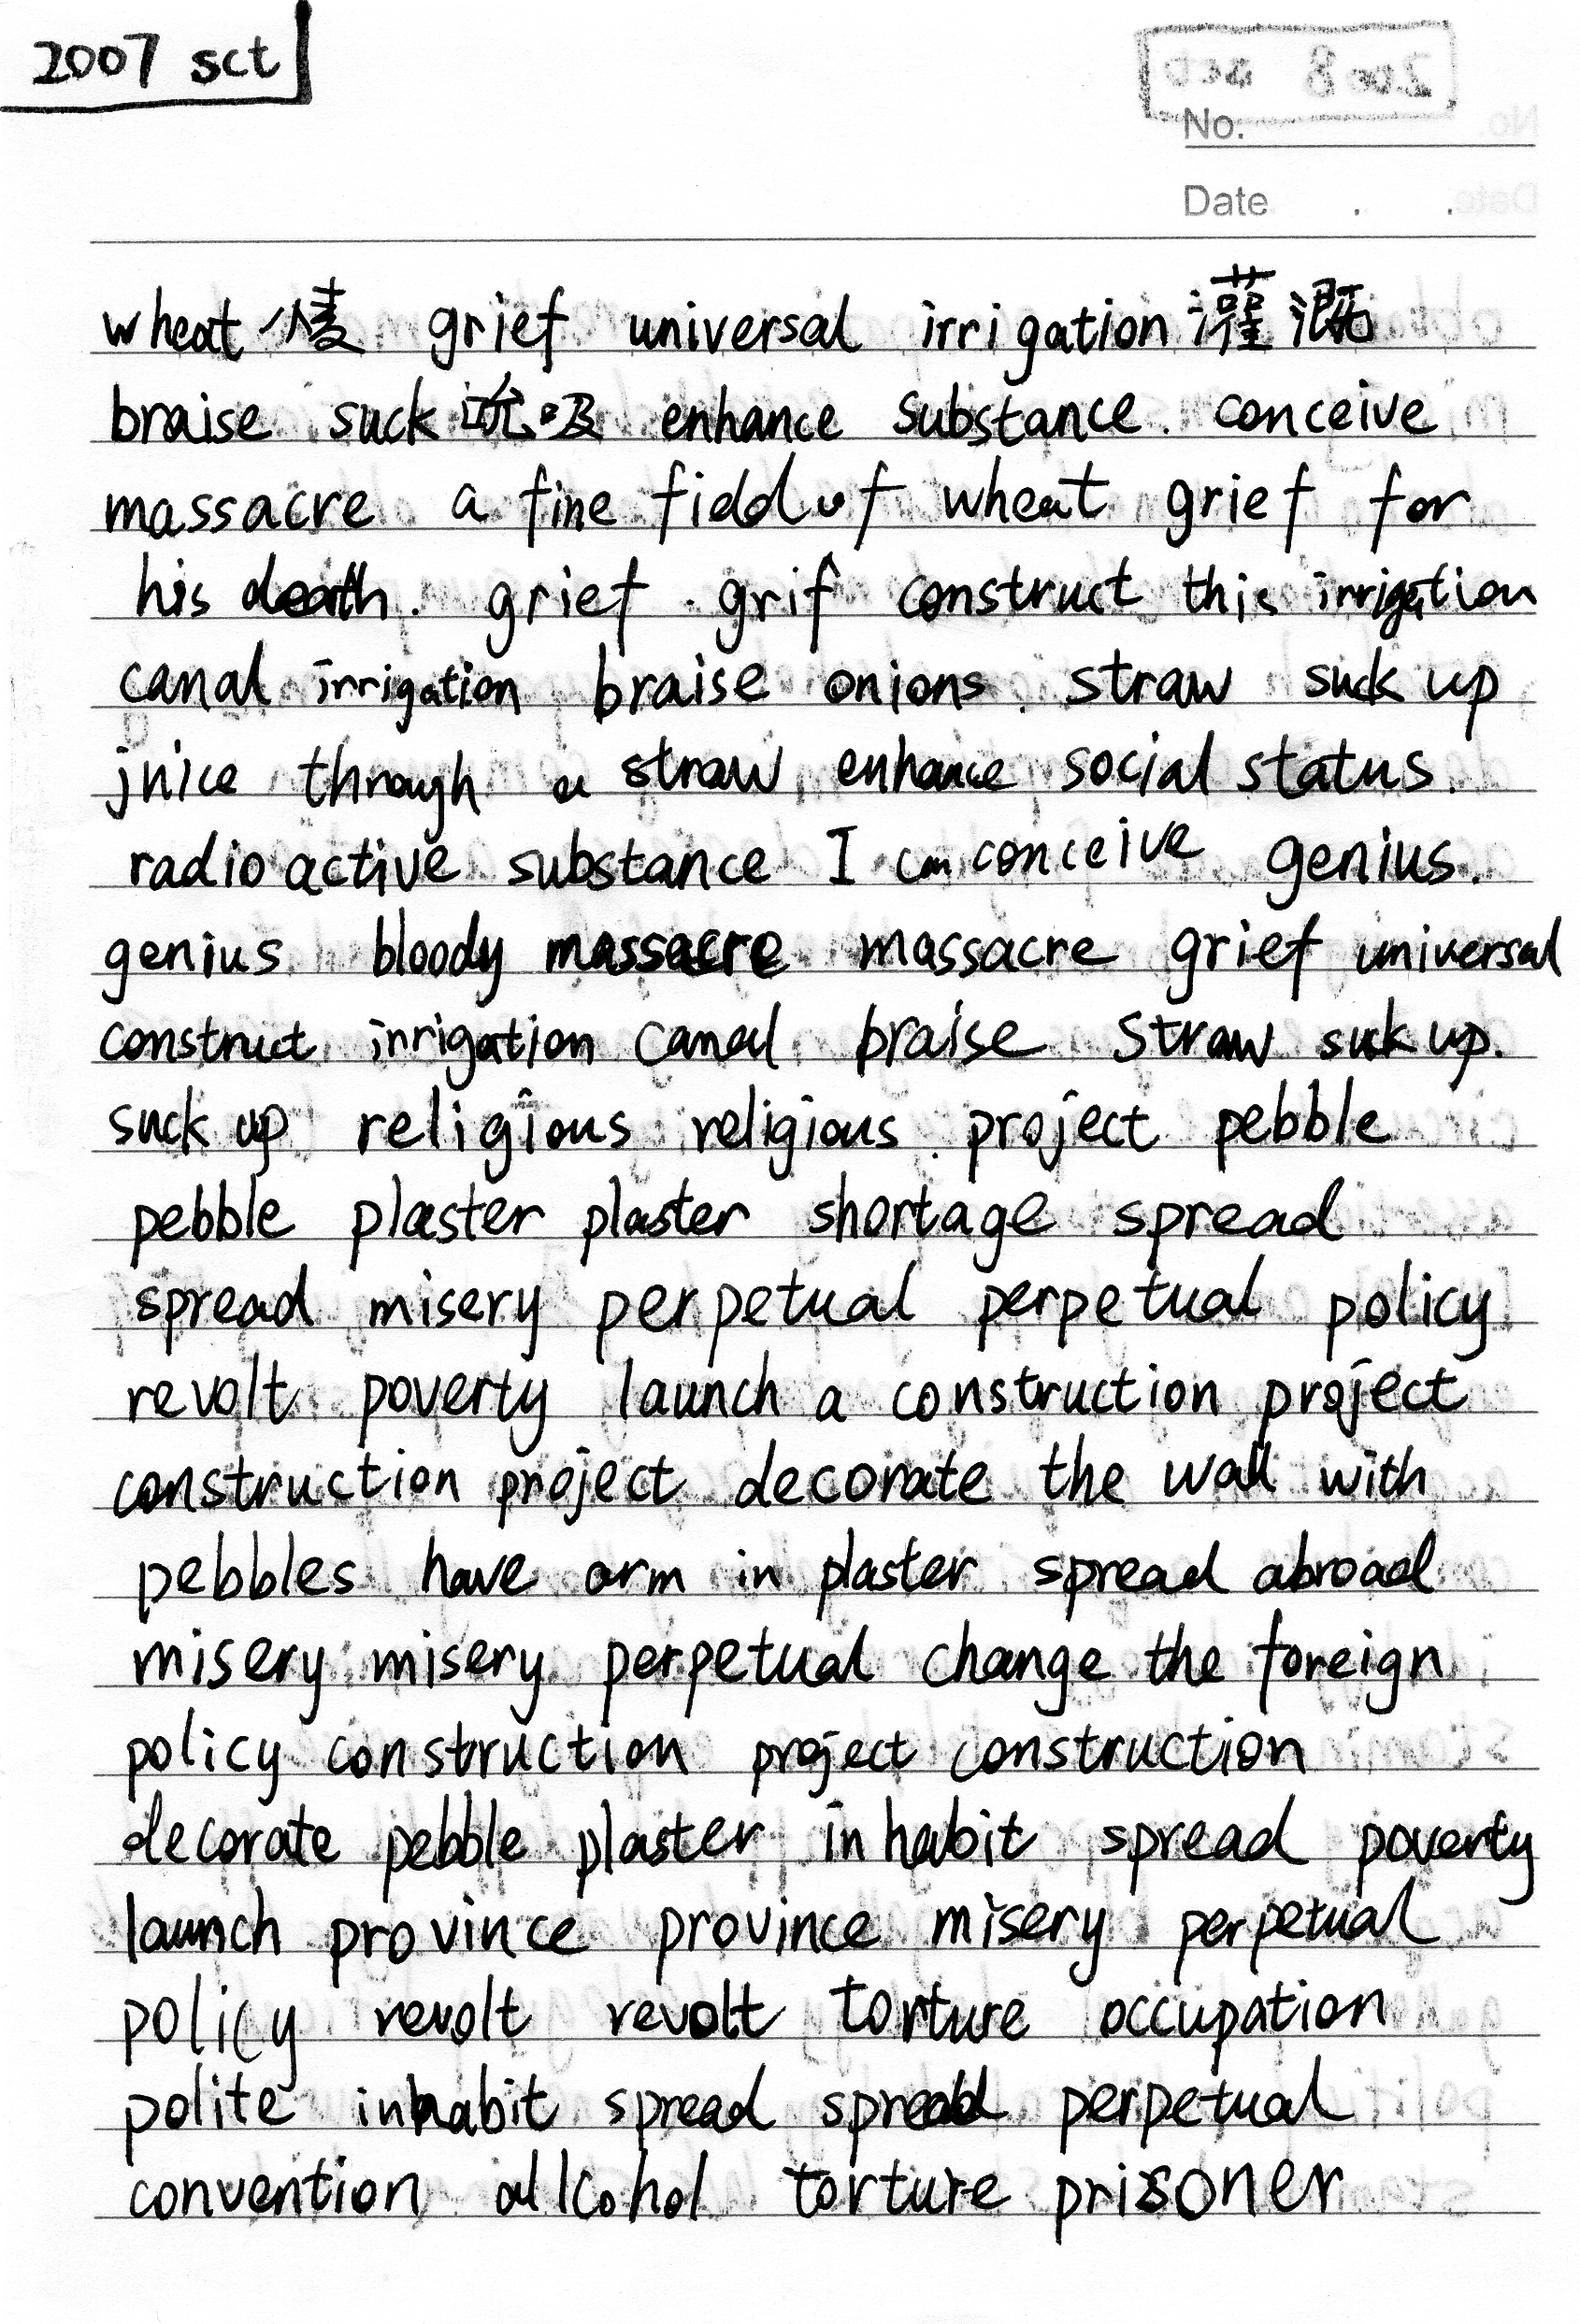 2007 sct
No.
Date . .
wheat 小麦 grief universal irrigation 灌溉
braise suck 吮吸 enhance substance. conceive
massacre a fine field of wheat grief for
his death. grief. grif construct this irrigation
canal irrigation braise onions. straw suck up
jnice through a straw enhance social status.
radio active substance I can conceive genius.
genius bloody massacre massacre grief universal
construct irrigation canal braise straw suck up.
suck up religious religious project pebble
pebble plaster plaster shortage spread
spread misery perpetual perpetual policy
revolt poverty launch a construction project
construction project decorate the wall with
pebbles have arm in plaster spread abroad
misery misery perpetual change the foreign
policy construction project construction
decorate pebble plaster inhabit spread poverty
launch province province misery perpetual
policy revolt revolt torture occupation
polite inhabit spread spread perpetual
convention allcohol torture prisoner